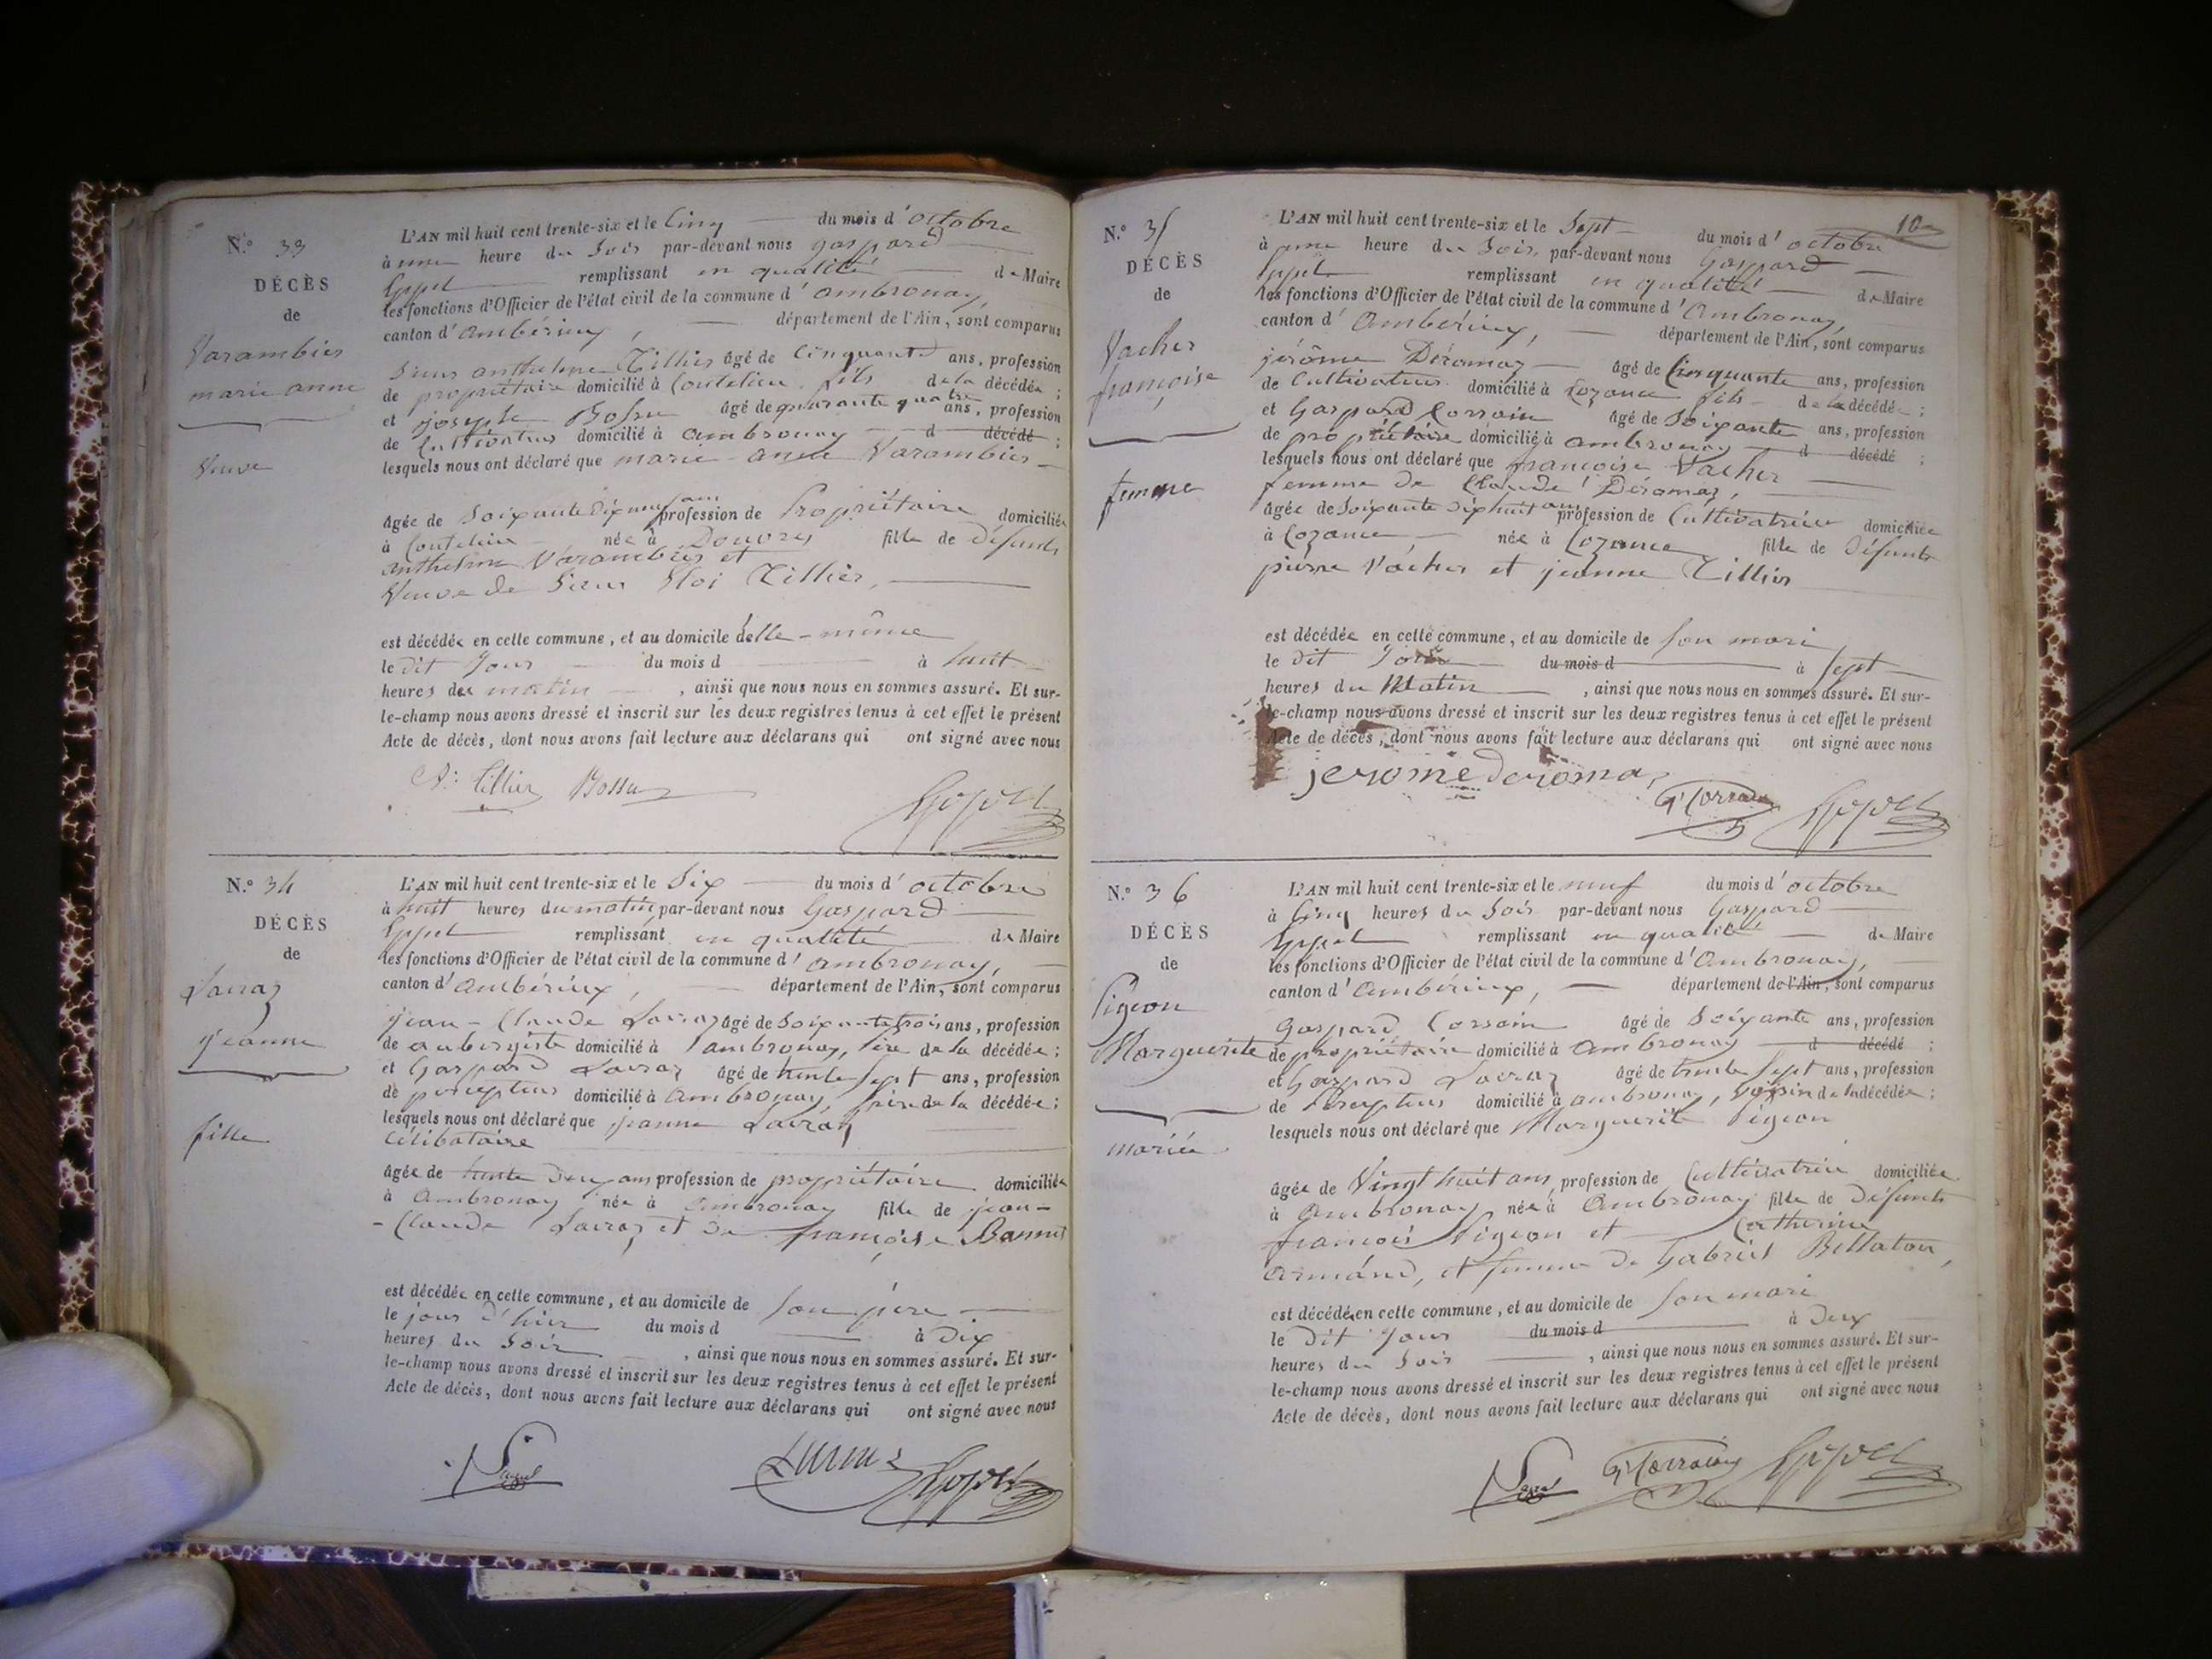 N.° 33
DÉCÈS
de
Varambier
marie anne
Veuve
L'AN mil huit cent trente-six et le Cinq du mois d'octobre
à une heure du Soir par-devant nous gaspard
remplissant en qualité de Maire
les fonctions d'Officier de l'état civil de la commune d'ambronay,
canton d'ambérieux, département de l'Ain, sont comparus
Sieur anthelme Tillier âgé de Cinquante ans, profession
de propriétaire domicilié à Coutelieu fils de la décédée ;
et joseph Bossu âgé de quarante quatre ans, profession
de Cultivateur domicilié à ambronay d décédé ;
lesquels nous ont déclaré que marie anne Varambier
âgée de Soixante dix neuf ans profession de Propriétaire domiciliée
à Coutelieu née à Douvres fille de défunts
anthelme Varambier et
Veuve de Sieur Eloi Tillier,
est décédée en cette commune, et au domicile d'elle-même
le dit jour du mois d à huit
heures du matin, ainsi que nous nous en sommes assuré. Et sur-
le-champ nous avons dressé et inscrit sur les deux registres tenus à cet effet le présent
Acte de décès, dont nous avons fait lecture aux déclarans qui ont signé avec nous
A. Tillier Bossu
N.° 34
DÉCÈS
de
Lavraz
jeanne
fille
L'AN mil huit cent trente-six et le Six du mois d'octobre
à huit heures du matin par-devant nous Gaspard
remplissant en qualité de Maire
les fonctions d'Officier de l'état civil de la commune d'ambronay,
canton d'ambérieux, département de l'Ain, sont comparus
jean-Claude Lavraz âgé de Soixante trois ans, profession
de aubergiste domicilié à ambronay, père de la décédée ;
et Gaspard Lavraz âgé de trente sept ans, profession
de percepteur domicilié à ambronay, frère de la décédée ;
lesquels nous ont déclaré que jeanne Lavraz
Célibataire
âgée de trente deux ans profession de propriétaire domiciliée
à Ambronay née à Ambronay fille de jean-
-Claude Lavraz et de françoise Bonnet
est décédée en cette commune, et au domicile de son père
le jour d'hier du mois d à dix
heures du Soir, ainsi que nous nous en sommes assuré. Et sur-
le-champ nous avons dressé et inscrit sur les deux registres tenus à cet effet le présent
Acte de décès, dont nous avons fait lecture aux déclarans qui ont signé avec nous
10
N.° 35
DÉCÈS
de
Vacher
françoise
femme
L'AN mil huit cent trente-six et le Sept du mois d'octobre
à une heure du Soir, par-devant nous Gaspard
remplissant en qualité de Maire
les fonctions d'Officier de l'état civil de la commune d'Ambronay,
canton d'Ambérieux, département de l'Ain, sont comparus
jérôme Déromaz âgé de Cinquante ans, profession
de Cultivateur domicilié à Cozance fils de la décédée ;
et Gaspard Corrain âgé de Soixante ans, profession
de propriétaire domicilié à ambronay d décédé ;
lesquels nous ont déclaré que françoise Vacher
femme de Claude Déromaz,
âgée de Soixante dix huit ans profession de Cultivatrice domiciliée
à Cozance née à Cozance fille de défunts
pierre Vacher et jeanne Tillier
est décédée en cette commune, et au domicile de son mari
le dit Jour du mois d à sept
heures du Matin, ainsi que nous nous en sommes assuré. Et sur-
le-champ nous avons dressé et inscrit sur les deux registres tenus à cet effet le présent
Acte de décès, dont nous avons fait lecture aux déclarans qui ont signé avec nous
jerome deromaz
G. Corrain
N.° 36
DÉCÈS
de
Pigeon
Marguerite
mariée
L'AN mil huit cent trente-six et le neuf du mois d'octobre
à Cinq heures du Soir par-devant nous Gaspard
remplissant en qualité de Maire
les fonctions d'Officier de l'état civil de la commune d'Ambronay,
canton d'Ambérieux, département de l'Ain, sont comparus
Gaspard Corrain âgé de Soixante ans, profession
de propriétaire domicilié à Ambronay d décédé ;
et Gaspard Lavraz âgé de trente sept ans, profession
de Percepteur domicilié à ambronay, voisin de la décédée ;
lesquels nous ont déclaré que Marguerite Pigeon
âgée de Vingt huit ans profession de Cultivatrice domiciliée
à Ambronay née à Ambronay fille de défunts
françois Pigeon et Catherine
Armand, et femme de Gabriel Bellaton,
est décédée en cette commune, et au domicile de son mari
le Dit Jour du mois d à Deux
heures du Soir, ainsi que nous nous en sommes assuré. Et sur-
le-champ nous avons dressé et inscrit sur les deux registres tenus à cet effet le présent
Acte de décès, dont nous avons fait lecture aux déclarans qui ont signé avec nous
G. Corrain